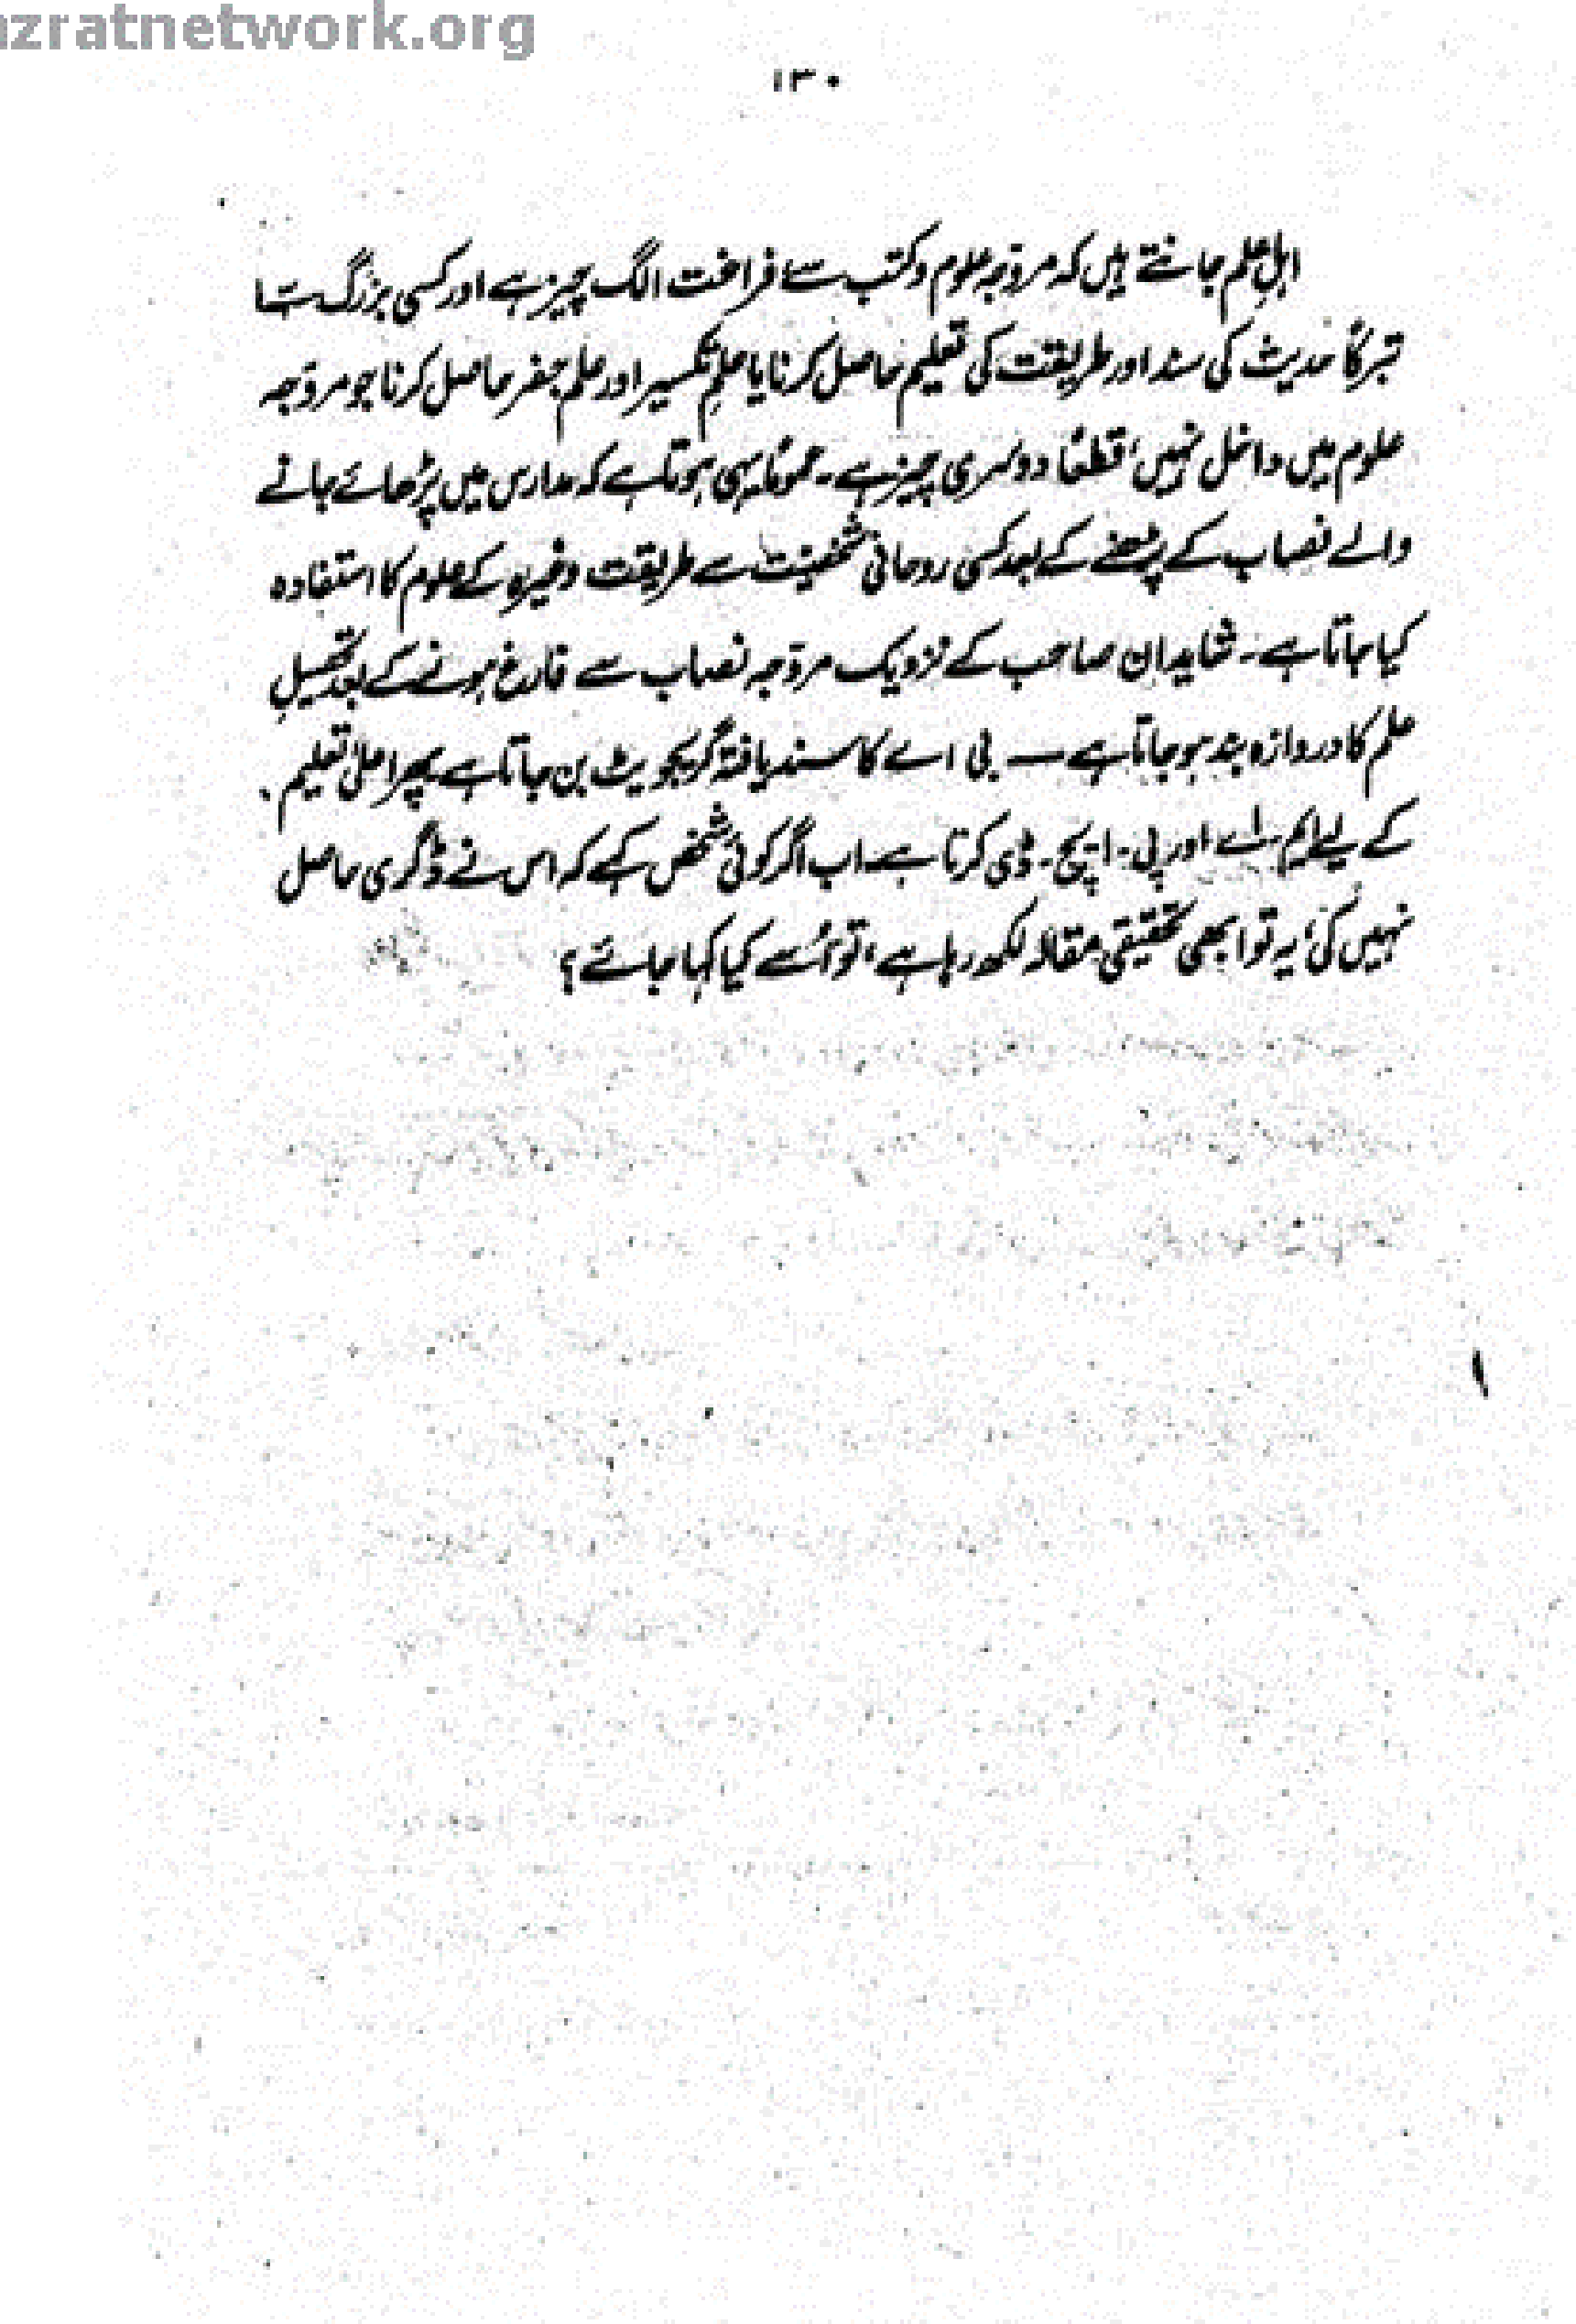 azratnetwork.org
۱۳۰
اہلِ علم جانتے ہیں کہ مروّجہ علوم و کتب سے فراغت الگ چیز ہے اور کسی بزرگ سے
تبرکاً حدیث کی سند اور طریقت کی تعلیم حاصل کرنا یا علمِ تکسیر اور علم جفر حاصل کرنا جو مروّجہ
علوم میں داخل نہیں، قطعًا دوسری چیز ہے۔ عمومًا یہی ہوتا ہے کہ مدارس میں پڑھائے جانے
والے نصاب کے پڑھنے کے بعد کسی روحانی شخصیّت سے طریقت وغیرہ کے علوم کا استفادہ
کیا جاتا ہے۔ شاید ان صاحب کے نزدیک مروّجہ نصاب سے فارغ ہونے کے بعد تحصیلِ
علم کا دروازہ بند ہو جاتا ہے — بی اے کا سند یافتہ گریجویٹ بن جاتا ہے پھر اعلیٰ تعلیم
کے لیے ایم۔ اے اور پی۔ ایچ۔ ڈی کرتا ہے۔ اب اگر کوئی شخص کہے کہ اس نے ڈگری حاصل
نہیں کی، یہ تو ابھی تحقیقی مقالہ لکھ رہا ہے، تو اُسے کیا کہا جائے؟